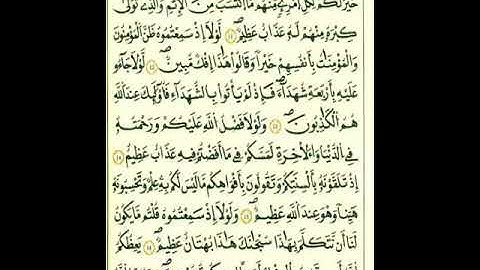 خَيْرٌ لَّكُمْ لِكُلِّ امْرِئٍ مِّنْهُم مَّا اكْتَسَبَ مِنَ الْإِثْمِ وَالَّذِي تَوَلَّىٰ
كِبْرَهُ مِنْهُمْ لَهُ عَذَابٌ عَظِيمٌ ۝ لَّوْلَا إِذْ سَمِعْتُمُوهُ ظَنَّ الْمُؤْمِنُونَ
وَالْمُؤْمِنَاتُ بِأَنفُسِهِمْ خَيْرًا وَقَالُوا هَٰذَا إِفْكٌ مُّبِينٌ ۝ لَّوْلَا جَاءُو
عَلَيْهِ بِأَرْبَعَةِ شُهَدَاءَ فَإِذْ لَمْ يَأْتُوا بِالشُّهَدَاءِ فَأُولَٰئِكَ عِندَ اللَّهِ
هُمُ الْكَاذِبُونَ ۝ وَلَوْلَا فَضْلُ اللَّهِ عَلَيْكُمْ وَرَحْمَتُهُ
فِي الدُّنْيَا وَالْآخِرَةِ لَمَسَّكُمْ فِي مَا أَفَضْتُمْ فِيهِ عَذَابٌ عَظِيمٌ ۝
إِذْ تَلَقَّوْنَهُ بِأَلْسِنَتِكُمْ وَتَقُولُونَ بِأَفْوَاهِكُم مَّا لَيْسَ لَكُم بِهِ عِلْمٌ وَتَحْسَبُونَهُ
هَيِّنًا وَهُوَ عِندَ اللَّهِ عَظِيمٌ ۝ وَلَوْلَا إِذْ سَمِعْتُمُوهُ قُلْتُم مَّا يَكُونُ
لَنَا أَن نَّتَكَلَّمَ بِهَٰذَا سُبْحَانَكَ هَٰذَا بُهْتَانٌ عَظِيمٌ ۝ يَعِظُكُمُ